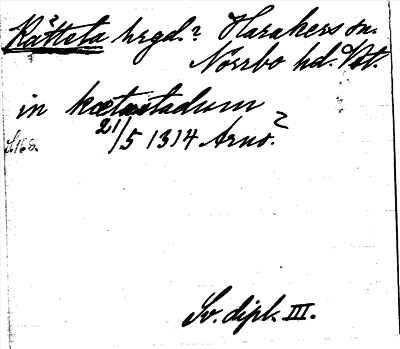 Kättsta hrgd.? Harakers sn.
Norrbo hd. Vst.
in kætastadum
21/5 1314 Arno?
Sv. dipl. III.